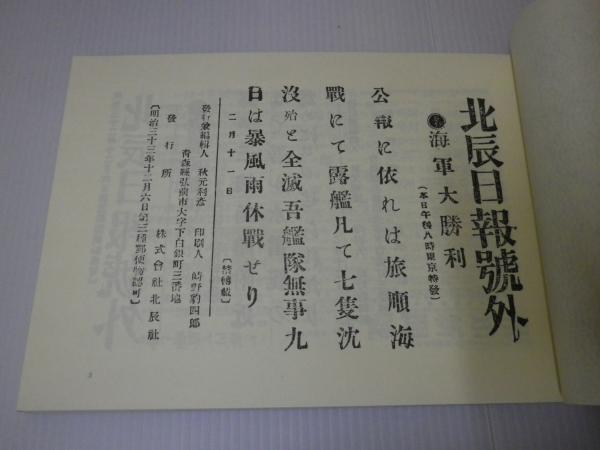 北辰日報號外
海軍大勝利
(本日午後八時東京特發)
公報に依れは旅順海
戰にて露艦凡て七隻沈
沒殆と全滅吾艦隊無事九
日は暴風雨休戰せり
二月十一日
〔禁轉載〕
發行兼編輯人 秋元利彦 印刷人 崎野豹四郎
青森縣弘前市大字下白銀町三番地
發行所 株式會社北辰社
〔明治三十三年十二月六日第三種郵便物認可〕